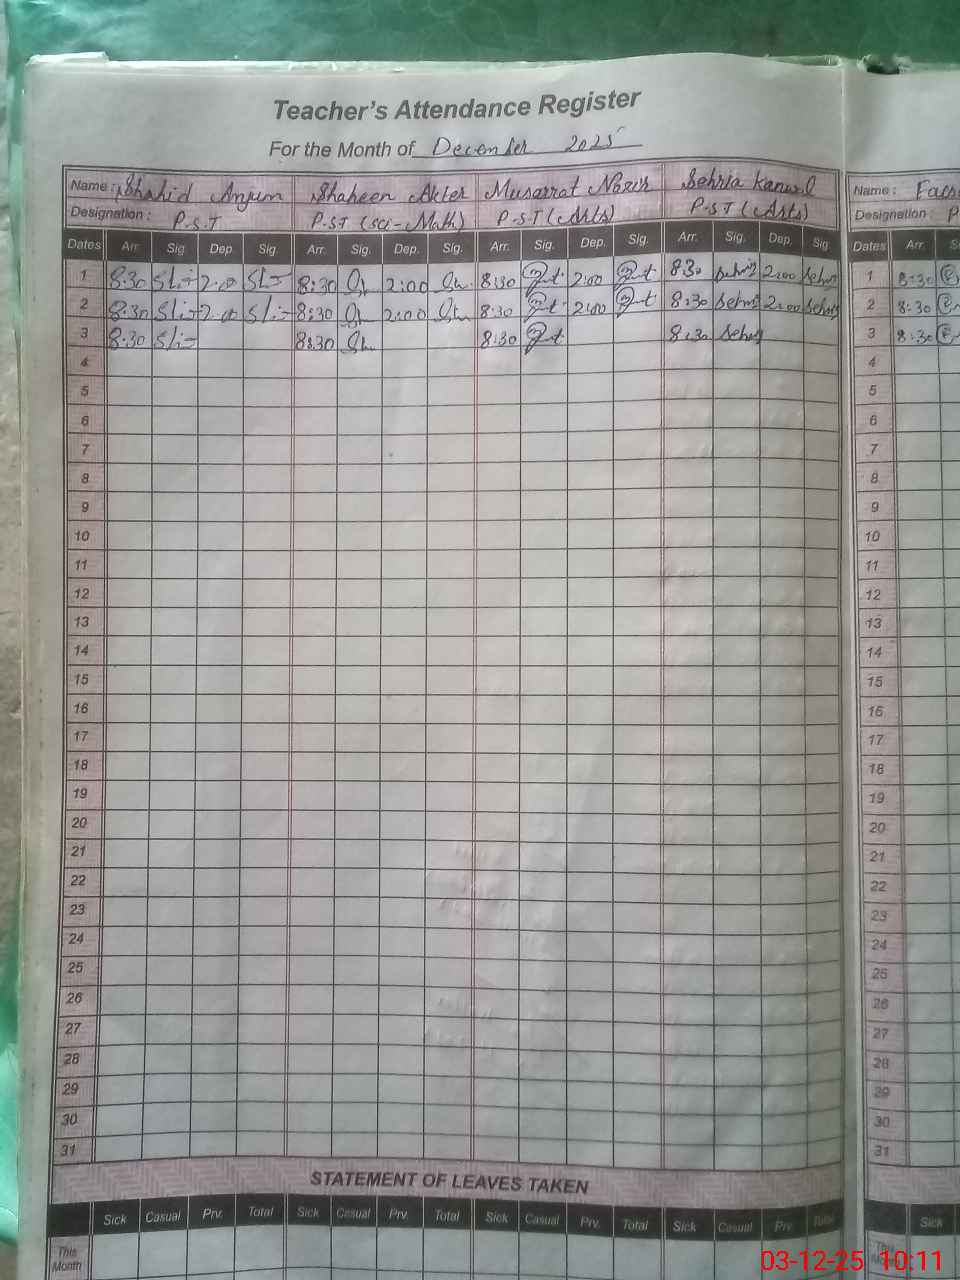 Teacher's Attendance Register
For the Month of December 2025
Name: Shahid Anjum Shaheen Akter Musarrat Nazir Sehria Kanwal Name:
Designation: P.S.T P.S.T (Sci-Math) P.S.T (Arts) P.S.T (Arts) Designation: P
Dates Arr. Sig. Dep. Sig. Arr. Sig. Dep. Sig. Arr. Sig. Dep. Sig. Arr. Sig. Dep. Sig. Dates Arr.
1 8:30 2:00 8:30 2:00 8:30 2:00 8:30 2:00 1 8:30
2 8:30 2:00 8:30 2:00 8:30 2:00 8:30 2:00 2 8:30
3 8:30 8:30 8:30 8:30 3 8:30
4 4
5 5
6 6
7 7
8 8
9 9
10 10
11 11
12 12
13 13
14 14
15 15
16 16
17 17
18 18
19 19
20 20
21 21
22 22
23 23
24 24
25 25
26 26
27 27
28 28
29 29
30 30
31 31
STATEMENT OF LEAVES TAKEN
Sick Casual Prv. Total Sick Casual Prv. Total Sick Casual Prv. Total Sick Casual Prv. Total Sick
This Month This Month
03-12-25 10:11